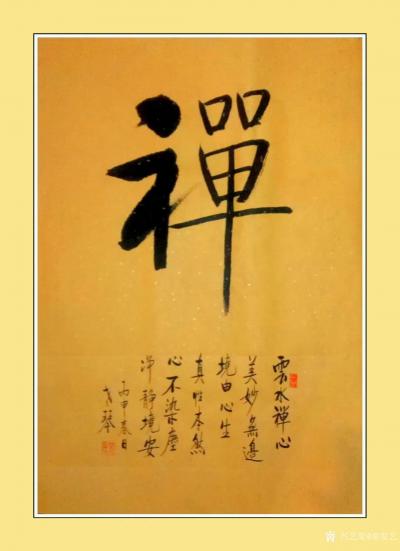 禪
雲水禪心
美妙無邊
境由心生
真性本然
心不染塵
净靜境安
丙申春日